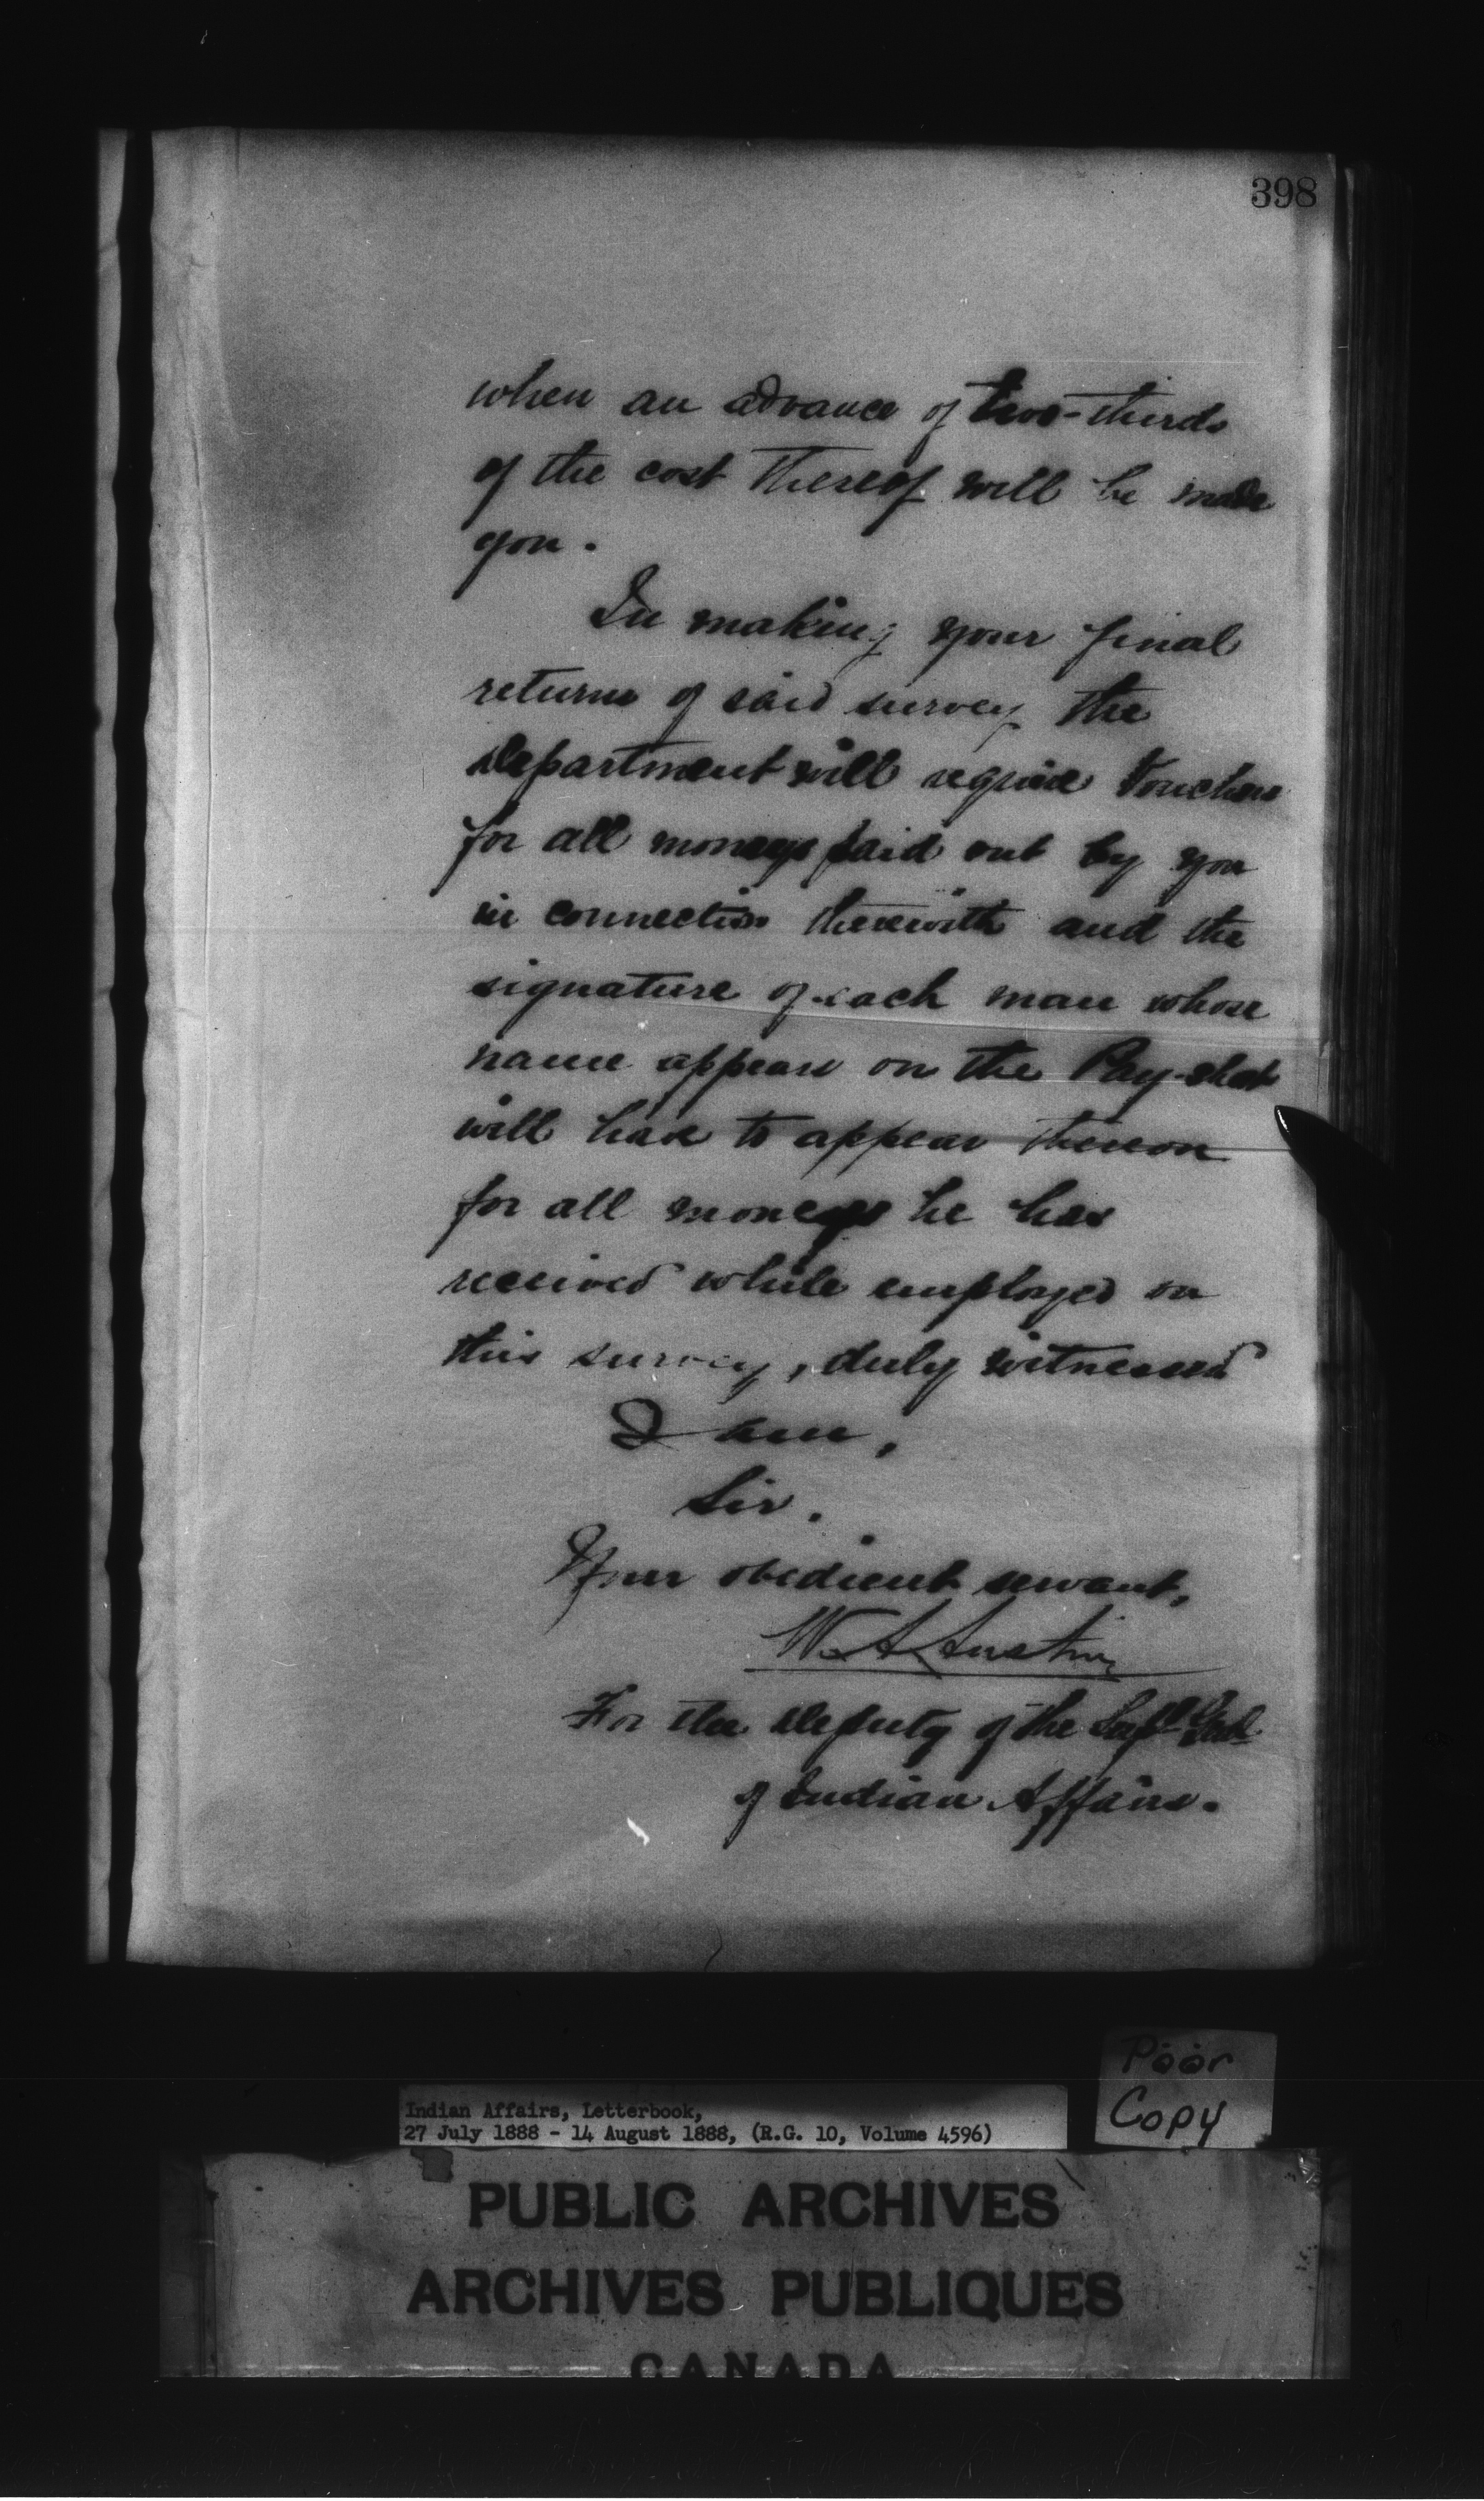 398
when an advance of two-thirds
of the cost thereof will be made
you.
In making your final
returns of said survey the
Department will require Vouchers
for all moneys paid out by you
in connection therewith and the
signature of each man whose
name appears on the Pay-sheet
will have to appear thereon
for all moneys he has
received while employed on
this survey, duly witnessed
I am,
Sir.
Your obedient servant,
W. A. Austin
For the Deputy of the Supt. Genl.
of Indian Affairs.
Poor
Copy
Indian Affairs, Letterbook,
27 July 1888 - 14 August 1888, (R.G. 10, Volume 4596)
PUBLIC ARCHIVES
ARCHIVES PUBLIQUES
CANADA